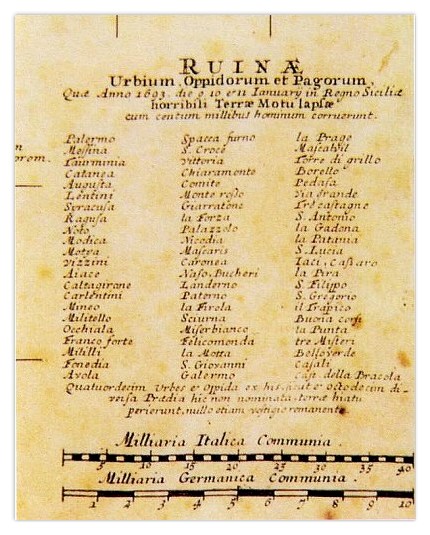 RUINÆ
Urbium, Oppidorum et Pagorum,
Quæ Anno 1693. die 9. 10 e 11 Ianuarÿ in Regno Siciliæ
horribili Terræ Motu lapsæ
cum centum millibus hominum corruerunt.
n
orom.
Palermo
Messina
Taurminia
Catanea
Augusta
Lentini
Seracusa
Ragusa
Noto
Modica
Motya
Vizzini
Aiace
Caltagirone
Carlentini
Mineo
Militello
Occhiala
Franco forte
Mililli
Fenedia
Avola
Spacca furno
S. Croce
Vittoria
Chiaramonte
Comite
Monte rosso
Giarratone
la Forza
Palazzolo
Nicodia
Mascaris
Caronea
Naso. Bucheri
Landerno
Paterno
la Firola
Sciurna
Miserbianco
Felicomonda
la Motta
S. Giovanni
Galermo
la Prage
Torre di grillo
Borello
Pedasa
Via grande
Tre castagne
S. Antonio
la Gadona
la Patania
S. Lucia
Iaci, Castaro
la Pira
S. Filippo
S. Gregorio
il Trapico
Buona corsi
la Punta
tre Misteri
Bolsoverde
Casali
Casi della Bracola
Quatuordecim Urbes e Oppida ex his, sicut e octodecim di-
versa Prædia hic non nominata, terræ hiatu
perierunt, nullo etiam vestigio romanente.
Milliaria Italica Communia.
5 10 15 20 25 30 35 40
Milliaria Germanica Communia.
1 2 3 4 5 6 7 8 9 10